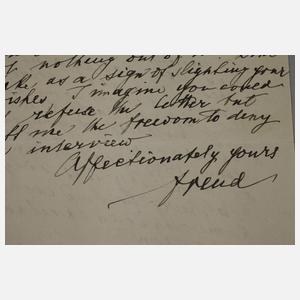 nothing out of it.
as a sign of slighting your
wishes. I imagine you could
refuse the letter but
me the freedom to deny
interview
Affectionately yours
Freud